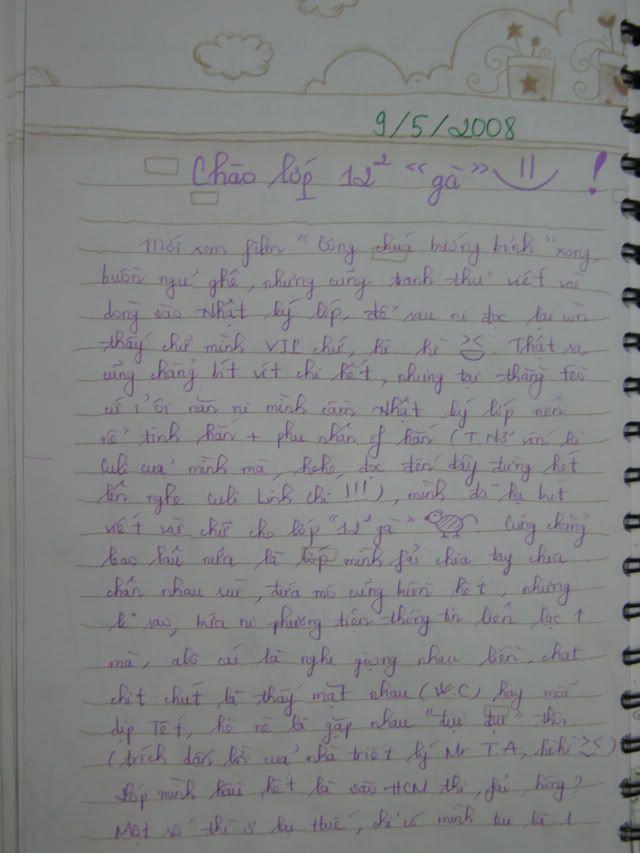 9/5/2008
Chào lớp 12² "gà" !
Mới xem film "Công chúa bướng bỉnh" xong,
buồn ngủ ghê, nhưng cũng tranh thủ viết vài
dòng vào Nhật ký lớp, để sau ni đọc lại còn
thấy chữ mình VIP chứ, hi hi >.< Thật ra
cũng chẳng bít vít chi hết, nhưng tại thằng Tèo
cứ ỉ ôi năn nỉ mình cầm Nhật ký lớp nên
nể tình hắn + phu nhân of hắn (T.N3 vốn là
Culi của mình mà, hehe, đọc đến đây đừng hét
lên nghe culi Linh chi !!!), mình đã hạ bút
viết vài chữ cho lớp "12² gà" . Cũng chẳng
bao lâu nữa là lớp mình fải chia tay chia
chân nhau rùi, đứa mô cũng buồn hết, nhưng
k sao, bữa ni phương tiện thông tin liên lạc ↑
mà, alô cái là nghe giọng nhau liền, chat
chít chút là thấy mặt nhau (W.C), hay mỗi
dịp Tết, hè về là gặp nhau "tựu tựu" thôi
(trích dẫn lời của nhà triết lý Mr T.A, hihi >.<)
Lớp mình hầu hết là vào HCM thi, fải hông?
Một số thì ở lại Huế, chỉ có mình tui là 1